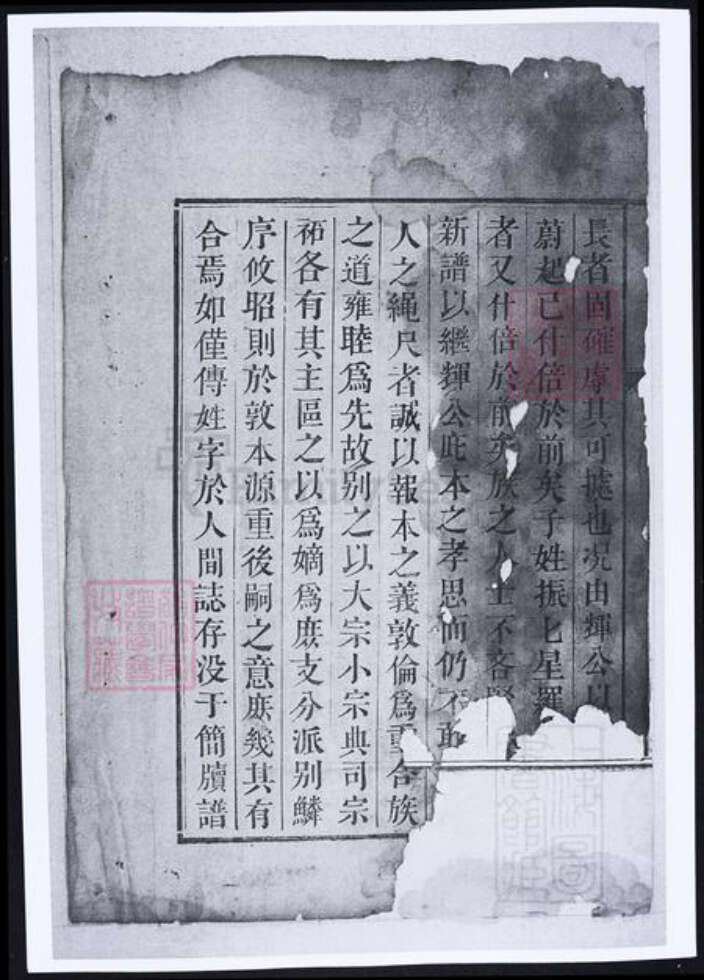 長者固確慮其可據也况由輝公以
蔚起已什倍於前矣子姓振振星羅
者又什倍於前矣族之人士不吝
新譜以繼輝公此本之孝思而仍不敢
人之繩尺者誠以報本之義敦倫爲重合族
之道雍睦爲先故别之以大宗小宗典司宗
祏各有其主區之以爲嫡爲庶支分派别鱗
序攸昭則於敦本源重後嗣之意庶幾其有
合焉如僅傳姓字於人間誌存没于簡牘譜